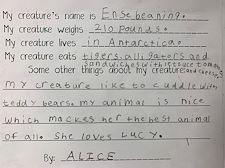 My creature's name is Ensebeaning.
My creature weighs 210 pounds.
My creature lives in Antarctica.
My creature eats tigers, alligators and
sandwiches with lettuce tomatoes
Some other things about my creature: and cheese
My creature like to cuddle with
teddy bears. my animal is nice
which mackes her the best animal
of all. She loves LUCY.
By: ALICE